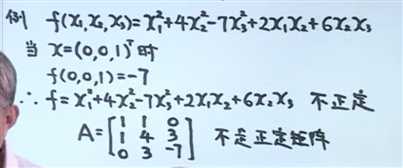 例 f(x₁,x₂,x₃)=x₁²+4x₂²-7x₃²+2x₁x₂+6x₂x₃
当 x=(0,0,1)ᵀ时
f(0,0,1)=-7
∴ f=x₁²+4x₂²-7x₃²+2x₁x₂+6x₂x₃ 不正定
A=[1 1 0
1 4 3
0 3 -7] 不是正定矩阵